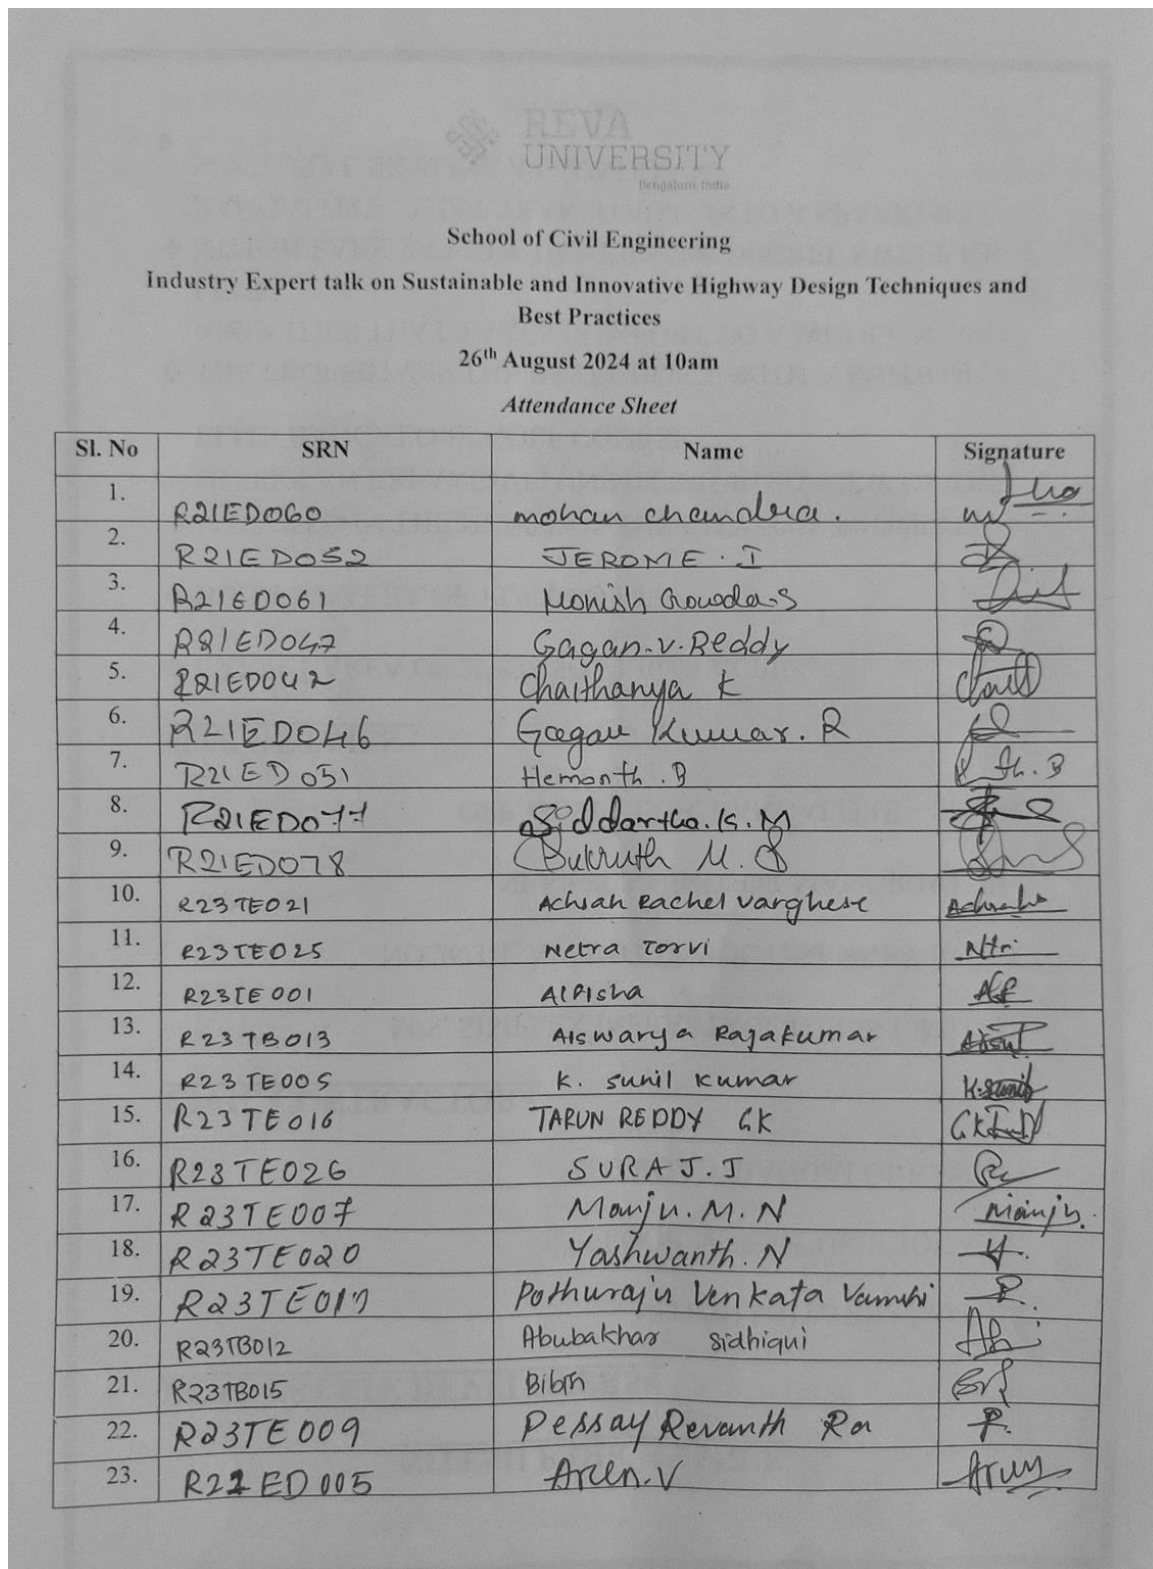 REVA
UNIVERSITY
Bengaluru, India
School of Civil Engineering
Industry Expert talk on Sustainable and Innovative Highway Design Techniques and
Best Practices
26th August 2024 at 10am
Attendance Sheet
Sl. No SRN Name Signature
1. R21ED060 mohan chandra.
2. R21ED052 JEROME. I
3. R21ED061 Monish Gowda.S
4. R21ED047 Gagan.V.Reddy
5. R21ED042 Chaithanya K
6. R21ED046 Gagan Kumar. R
7. R21ED051 Hemanth.B th.B
8. R21ED077 Siddartha.K.M
9. R21ED078 M.
10. R23TE021 Achsah Rachel Varghese
11. R23TE025 Netra Torvi
12. R23TE001 Alfisha
13. R23TB013 Aiswarya Rajakumar
14. R23TE005 K. Sunil Kumar K.Sunil
15. R23TE016 TARUN REDDY GK
16. R23TE026 SURAJ.J
17. R23TE007 Manju.M.N Manju.
18. R23TE020 Yashwanth.N Y.
19. Pothuraju Venkata Vamshi P.
20. R23TB012 Abubakhar Sidhiqui
21. R23TB015 Bibin
22. R23TE009 Pessay Revanth P.
23. ED005 Arun.V Arun